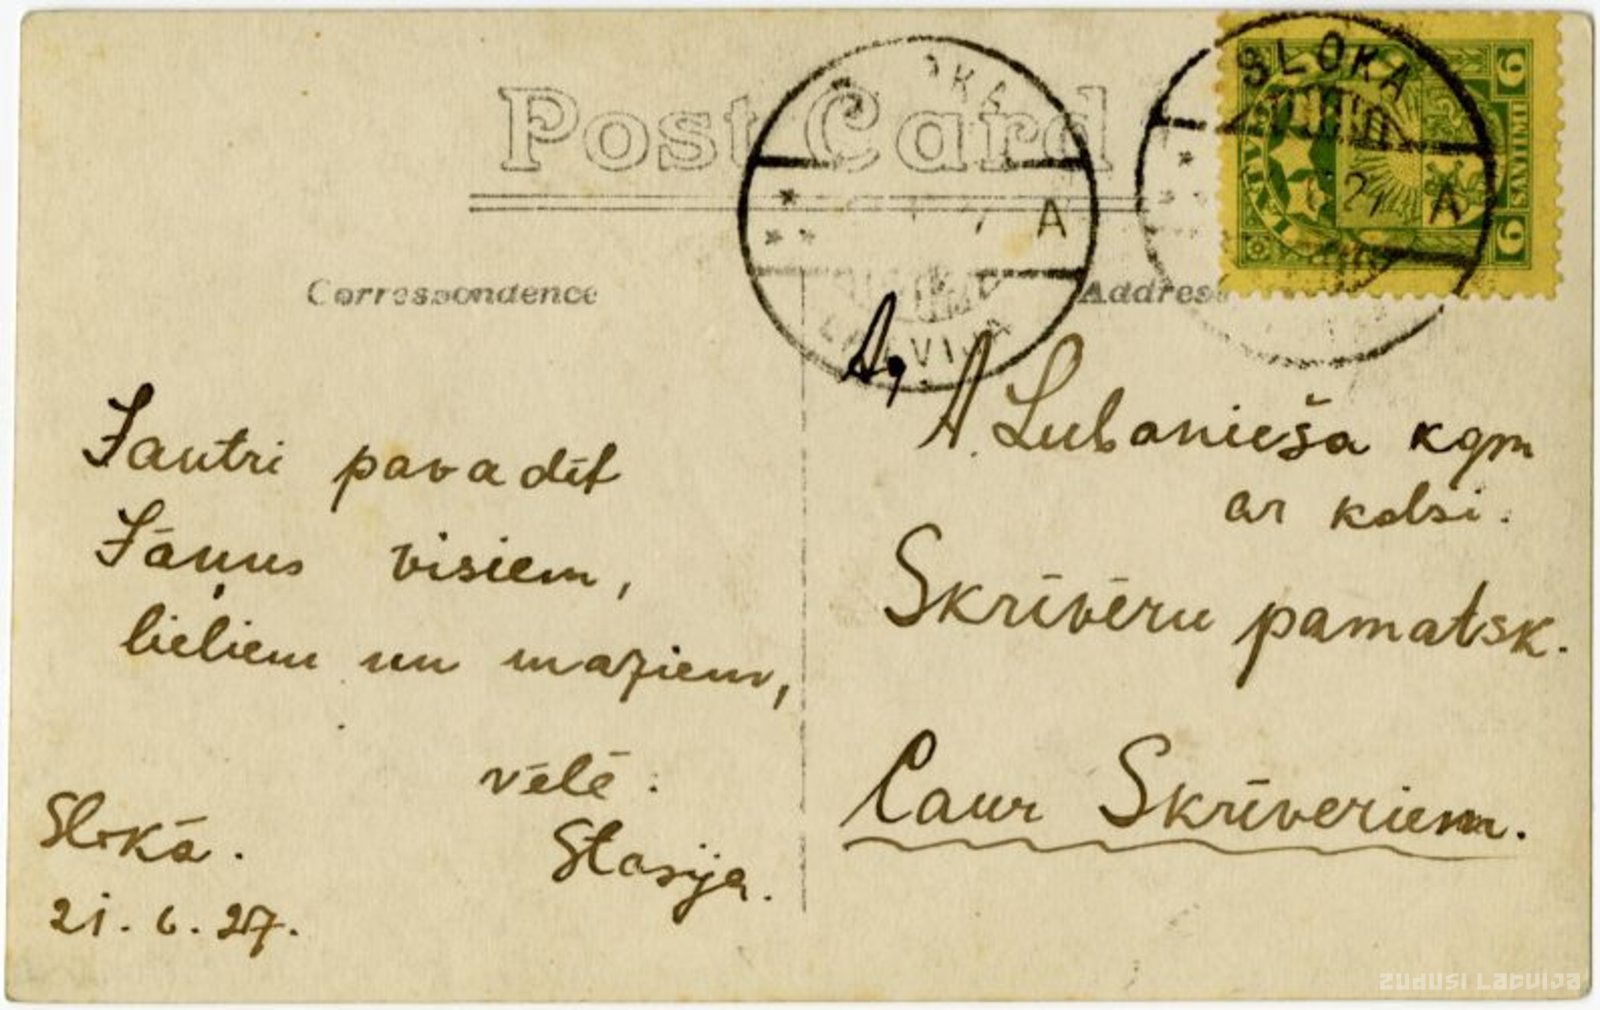 Post Card
Correspondence
Address
SLOKA
LATVIJA
A
SLOKA
21
A
LATVIJA
6 SANTIMI 6
Ag. A. Lubanieša kgm
ar kdsi.
Skrīvēru pamatsk.
Caur Skrīveriem.
Jautri pavadīt
Jāņus visiem,
lieliem un maziem,
vēlē:
Stasija.
Slokā.
21. 6. 27.
zudusi Latvija